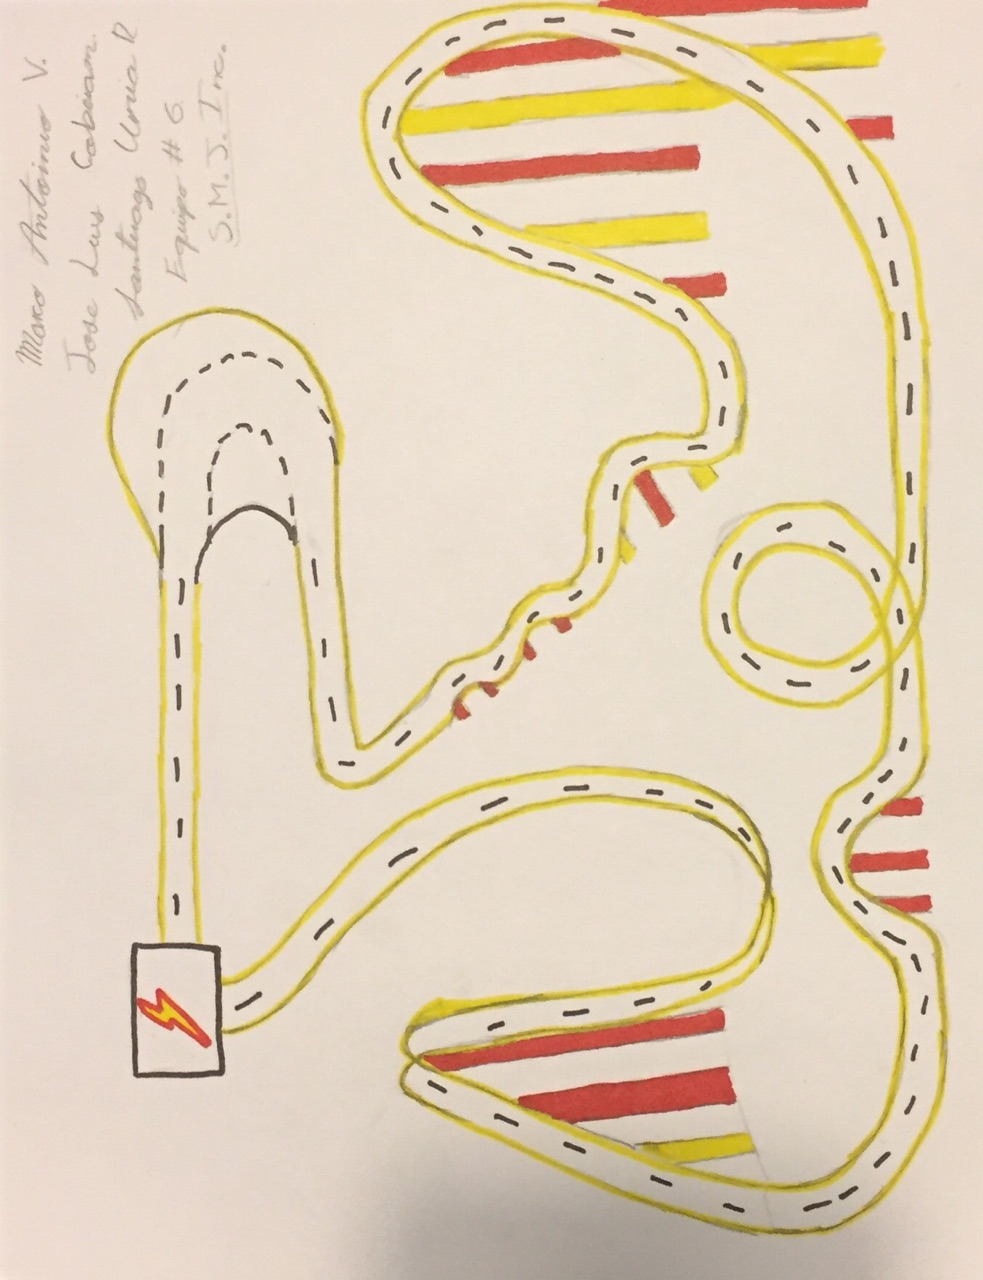 Marco Antonio V.
Jose Luis
Santiago Urvia R
Equipo # 6
S.M.J. Inc.